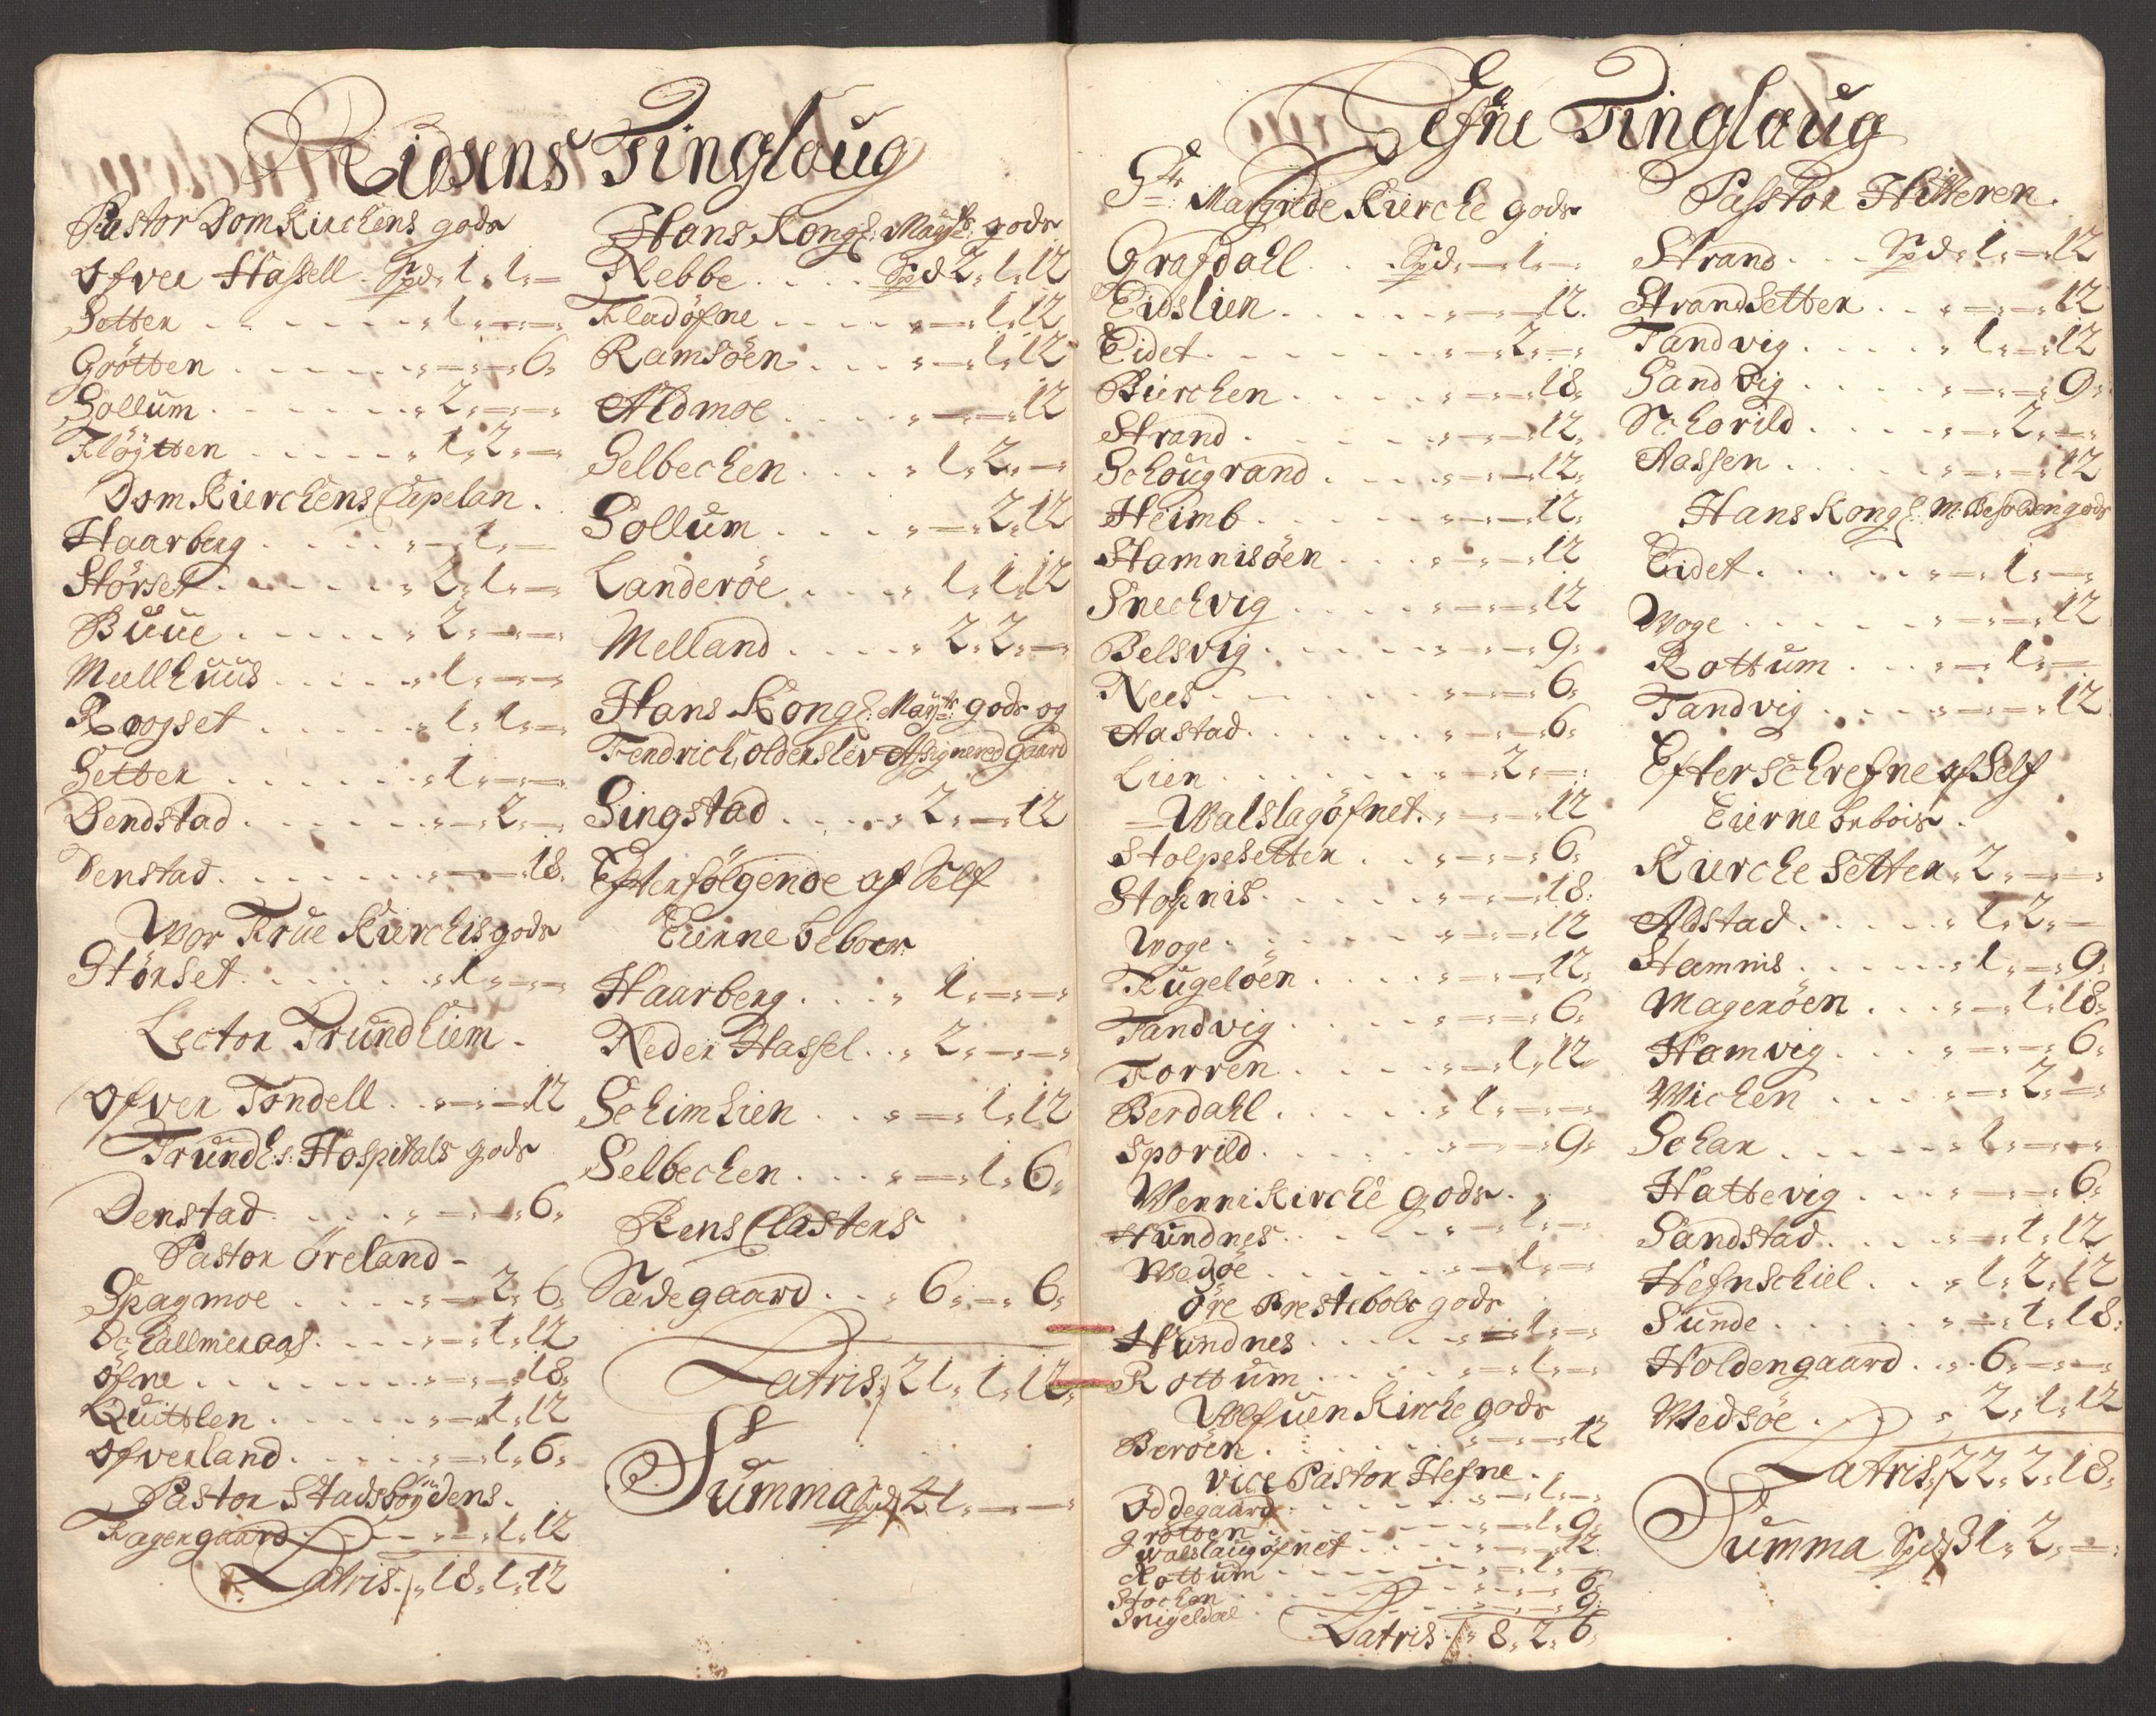 Ridsens Tinglaug
Pastor DomKirchens gods
Ofver Hassell . Spd. 1. 1. —
Setter . . . . . . . 1. — —
Grötten . . . . . . — — 6.
Sollum . . . . . . 2. — —
Flöÿtten . . . . . 1. 2. —
Dom Kierchens Capelan .
Haarberg . . . . . — 1. —
Störset . . . . . . 2. 1. —
Buue . . . . . . 2. — —
Mællhuus . . . . . 1. — —
Roogset . . . . . . 1. 1. —
Setter . . . . . . 1. — —
Dendstad . . . . . . — 2. —
Denstad . . . . . . — — 18.
Wor Frue Kierchis gods
Störset . . . . . . 1. — —
Lector Trundhiem -
Ofver Tondell . . — — 12
Trundh:s: Hospitals gods
Denstad . . . . . — — 6.
Pastor Öreland -
Spagmoe . . . . . — 2. 6.
Schallmeraas . . . . — 1. 12
öfne . . . . . . . . — — 18.
Quittlen . . . . . . — 1. 12
Ofverland . . . . . — 1. 6.
Pastor Stadsboÿdens .
Fagergaard . . . . — 1. 12
Latris . 18. 1. 12
Hans Kongl: Mayts: gods
Nebbe . . . . . Spd 2. 1. 12
Fladöfne . . . . . — 1. 12
Ramsöen . . . . — 1. 12
Aldmoe . . . . . — — 12
Selbechen . . . . 1. 2. —
Sollum . . . . — 2. 12
Landeröe . . . . 1. 1. 12
Melland . . . . . 2. 2. —
Hans Kongl: Mayts: gods og
Fendrich Olderslev Assignered gaard
Singstad . . . . . 2. — 12
Efterfölgende af Self
Eierne beboer
Haarberg . . . . 1. — —
Neder Hassel . . . 2. — —
Schimlien . . . — 1. 12
Selbechen . . . . — 1. 6.
Rens Closters
Sædegaard . . . 6. — 6.
Latris. 21. 1. 12.
Summa Spd 41. — —
Hefne Tinglaug
Ste: Margrede Kierche gods
Grafdahl . . . Spd. — 1. —
Eidslien . . . . . . — — 12.
Eidet . . . . . . . — 2. —
Bierchen . . . . . — — 18.
Strand . . . . . . — — 12.
Schougrand . . . . — — 12.
Heimb . . . . . . — — 12.
Stamnisöen . . . . — — 12
Snechvig . . . . . — — 12
Belsvig . . . . . . — — 9.
Nees . . . . . . . — — 6.
Aastad . . . . . . — — 6.
Lien . . . . . . . — 2. —
Walslagöfnet . . — — 12
Stolpesetter . . . — — 6.
Stofnis . . . . . — — 18.
Woge . . . . . . — — 12
Fugelöen . . . . — — 12.
Tandvig . . . . . — — 6.
Forren . . . . . — 1. 12
Berdahl . . . . . 1. — —
Sporild . . . . . — — 9.
Wenni Kirche gods .
Hundnes . . . . . — 1. —
Wedöe . . . . . . — 1. —
Öre Prestebols gods
Hundnes . . . . . — 1. —
Rottum . . . . . — 1. —
Ulfuen Kirche gods
Beröen . . . . . — — 12
vice Pastor Hefne .
Öddegaard . . . . . — 1. —
grötten . . . . . . — 1. 9.
Walslaugöfnet . . . . — — 12.
Rottum . . . . . . — 1. —
Stochen . . . . . . — — 6.
Snigeldal . . . . . — — 9.
Latris . 8. 2. 6.
Passtor Hitteren .
Strand . . . Spd. 1. — 12
Strandsetter . . — — 12
Tandvig . . . . . 1. — 12
Sandvig . . . . . — — 9.
Schorild . . . . — 2. —
Aassen . . . . . — — 12
Hans Kongl: M: Besolden gods
Eidet . . . . . . — 1. —
Woge . . . . . . — — 12
Rottum . . . . — 1. —
Tandvig . . . . . — — 12
Efterschrefne af Self
Eierne beboes .
Kierchesetter . 2. — —
Aldstad . . . . . 1. 2. —
Stamnis . . . . . 1. — 9.
Mageröen . . . — 1. 18.
Hamvig . . . . — — 6.
Wichen . . . . . — 2. —
Schar . . . . . 1. — —
Hattevig . . . . — — 6.
Sandstad . . . . — 1. 12
Hefnschiel . . . 1. 2. 12
Sunde . . . . . — 1. 18.
Holdengaard . . . 6. — —
Wedsöe . . . . 2. 1. 12
Latris. 22. 2. 18.
Summa Spd 31. 2. —